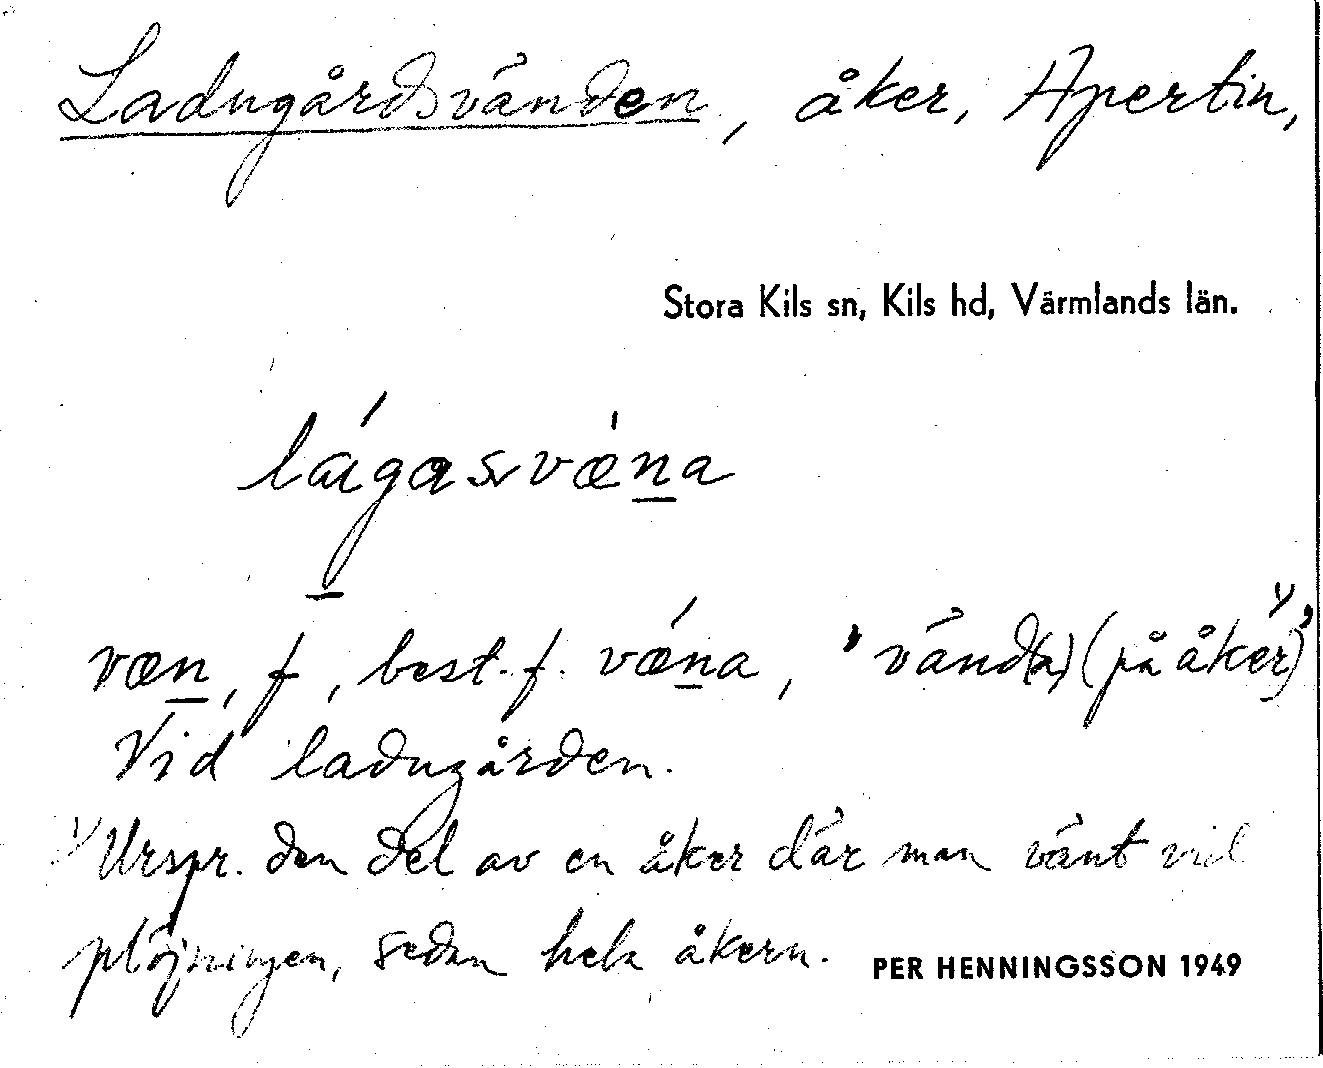 Ladugårdsvänden, åker, Apertin,
Stora Kils sn, Kils hd, Värmlands län.
lágasvæ̀na
væn, f, best. f. vǽna, 'vänd(a) (på åker)¹⁾'
Vid ladugården.
¹⁾ Urspr. den del av en åker där man vänt vid
plöjningen, sedan hela åkern.
PER HENNINGSSON 1949